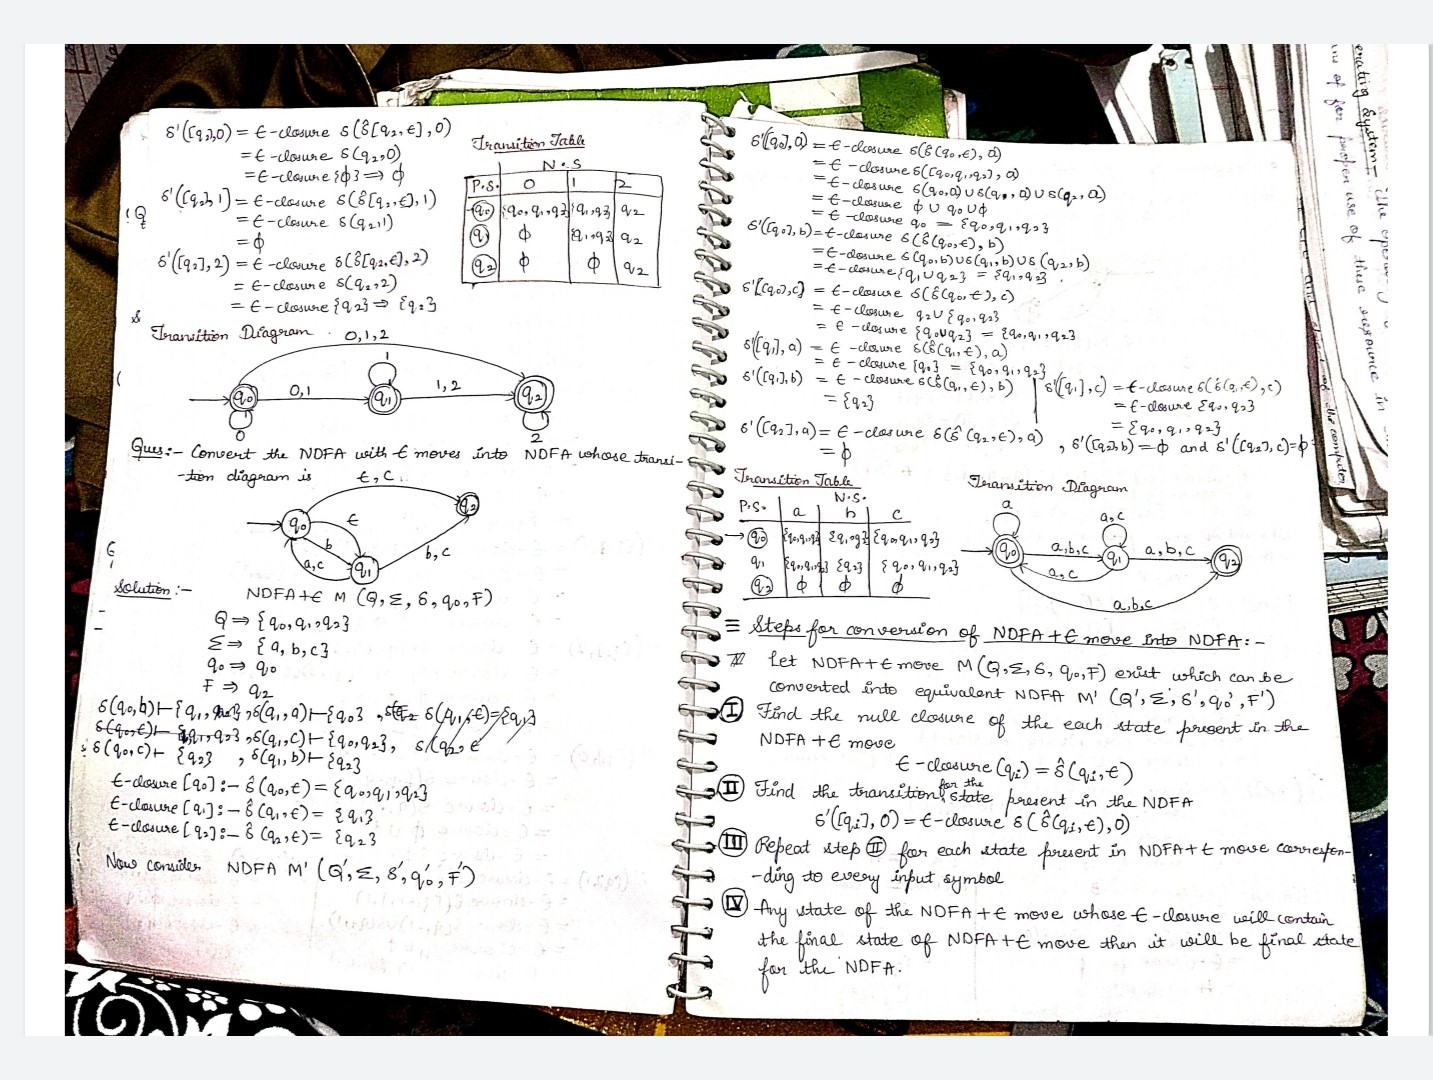 δ'([q₂],0) = ϵ-closure δ(δ̂[q₂,ϵ],0)
= ϵ-closure δ(q₂,0)
= ϵ-closure {ϕ} ⟹ ϕ
δ'([q₂],1) = ϵ-closure δ(δ̂[q₂,ϵ],1)
= ϵ-closure δ(q₂,1)
= ϕ
δ'([q₂],2) = ϵ-closure δ(δ̂[q₂,ϵ],2)
= ϵ-closure δ(q₂,2)
= ϵ-closure {q₂} ⟹ {q₂}
Transition Table
N.S
P.S. 0 1 2
→q₀ {q₀,q₁,q₂} {q₁,q₂} q₂
q₁ ϕ {q₁,q₂} q₂
q₂ ϕ ϕ q₂
Transition Diagram
0,1,2
1
q₀ 0,1 q₁ 1,2 q₂
0 2
Ques:- Convert the NDFA with ϵ moves into NDFA whose transi-
-tion diagram is
ϵ, C
q₀ ϵ q₂
b
a,c q₁ b,c
Solution:-
NDFA+ϵ M (Q, Σ, δ, q₀, F)
Q ⟹ {q₀,q₁,q₂}
Σ ⟹ {a,b,c}
q₀ ⟹ q₀
F ⟹ q₂
δ(q₀,b)⊢{q₁, }, δ(q₁,a)⊢{q₀}, δ(q₁,ϵ)={q₁}
δ(q₀,ϵ)⊢{q₁,q₂}, δ(q₁,c)⊢{q₀,q₂}, δ(q₂,ϵ
δ(q₀,c)⊢{q₂}, δ(q₁,b)⊢{q₂}
ϵ-closure [q₀]:- δ̂(q₀,ϵ) = {q₀,q₁,q₂}
ϵ-closure [q₁]:- δ̂(q₁,ϵ) = {q₁}
ϵ-closure [q₂]:- δ̂(q₂,ϵ) = {q₂}
Now consider NDFA M' (Q', Σ, δ', q₀', F')
δ'([q₀],a) = ϵ-closure δ(δ̂(q₀,ϵ), a)
= ϵ-closure δ([q₀,q₁,q₂], a)
= ϵ-closure δ(q₀,a) ∪ δ(q₁, a) ∪ δ(q₂, a)
= ϵ-closure ϕ ∪ q₀ ∪ ϕ
= ϵ-closure q₀ = {q₀,q₁,q₂}
δ'([q₀],b) = ϵ-closure δ(δ̂(q₀,ϵ), b)
= ϵ-closure δ(q₀,b) ∪ δ(q₁,b) ∪ δ(q₂,b)
= ϵ-closure {q₁ ∪ q₂} = {q₁,q₂}
δ'([q₀],c) = ϵ-closure δ(δ̂(q₀,ϵ), c)
= ϵ-closure q₂ ∪ {q₀,q₂}
= ϵ-closure {q₀∪q₂} = {q₀,q₁,q₂}
δ'([q₁],a) = ϵ-closure δ(δ̂(q₁,ϵ), a)
= ϵ-closure {q₀} = {q₀,q₁,q₂}
δ'([q₁],b) = ϵ-closure δ(δ̂(q₁,ϵ), b)
= {q₂}
δ'([q₁],c) = ϵ-closure δ(δ̂(q₁,ϵ),c)
= ϵ-closure {q₀,q₂}
= {q₀,q₁,q₂}
δ'([q₂],a) = ϵ-closure δ(δ̂(q₂,ϵ),a) , δ'([q₂],b)=ϕ and δ'([q₂],c)=ϕ
= ϕ
Transition Table
N.S.
P.S. a b c
→q₀ {q₀,q₁,q₂} {q₁,q₂} {q₀,q₁,q₂}
q₁ {q₀,q₁,q₂} {q₂} {q₀,q₁,q₂}
q₂ ϕ ϕ ϕ
Transition Diagram
a a,c
q₀ a,b,c q₁ a,b,c q₂
a,c
a,b,c
≡ Steps for conversion of NDFA+ϵ move into NDFA:-
Let NDFA+ϵ move M(Q,Σ,δ,q₀,F) exist which can be
converted into equivalent NDFA M' (Q',Σ',δ',q₀',F')
I Find the null closure of the each state present in the
NDFA+ϵ move
ϵ-closure (qᵢ) = δ̂(qᵢ,ϵ)
II Find the transition for the state present in the NDFA
δ'([qᵢ],0) = ϵ-closure δ(δ̂(qᵢ,ϵ),0)
III Repeat step II for each state present in NDFA+ϵ move correspon-
-ding to every input symbol
IV Any state of the NDFA+ϵ move whose ϵ-closure will contain
the final state of NDFA+ϵ move then it will be final state
for the NDFA.
erating System:- The
of for proper use of these resource in
computer